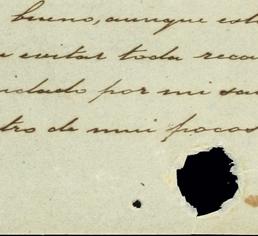 bueno, aunque est
a evitar toda reca
ndado por mi sa
tro de mui pocos